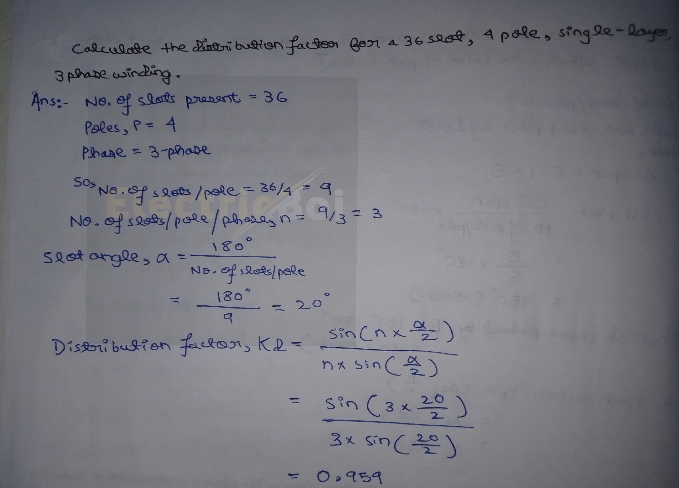 Calculate the distribution factor for a 36 slot, 4 pole, single-layer,
3 phase winding.
Ans:- No. of slots present = 36
Poles, P = 4
Phase = 3-phase
So, No. of slots/pole = 36/4 = 9
No. of slots/pole/phase, n = 9/3 = 3
slot angle, α = 180° / No. of slots/pole
= 180° / 9 = 20°
Distribution factor, Kd = sin(n x α/2) / n x sin(α/2)
= sin(3 x 20/2) / 3 x sin(20/2)
= 0.959